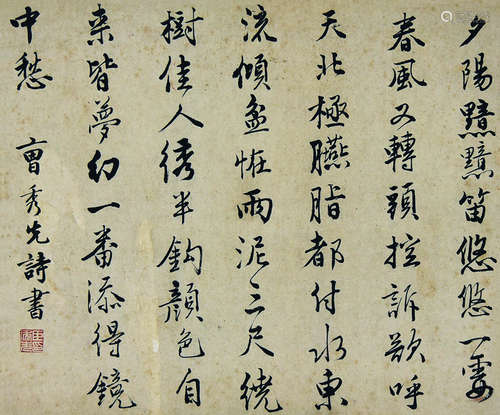 夕陽黯黯笛悠悠一霎
春風又轉頭控訴欲呼
天北極臙脂都付水東
流傾盆怪雨泥三尺繞
樹佳人繡半鈎顏色自
來皆夢幻一番添得鏡
中愁 曹秀先詩書